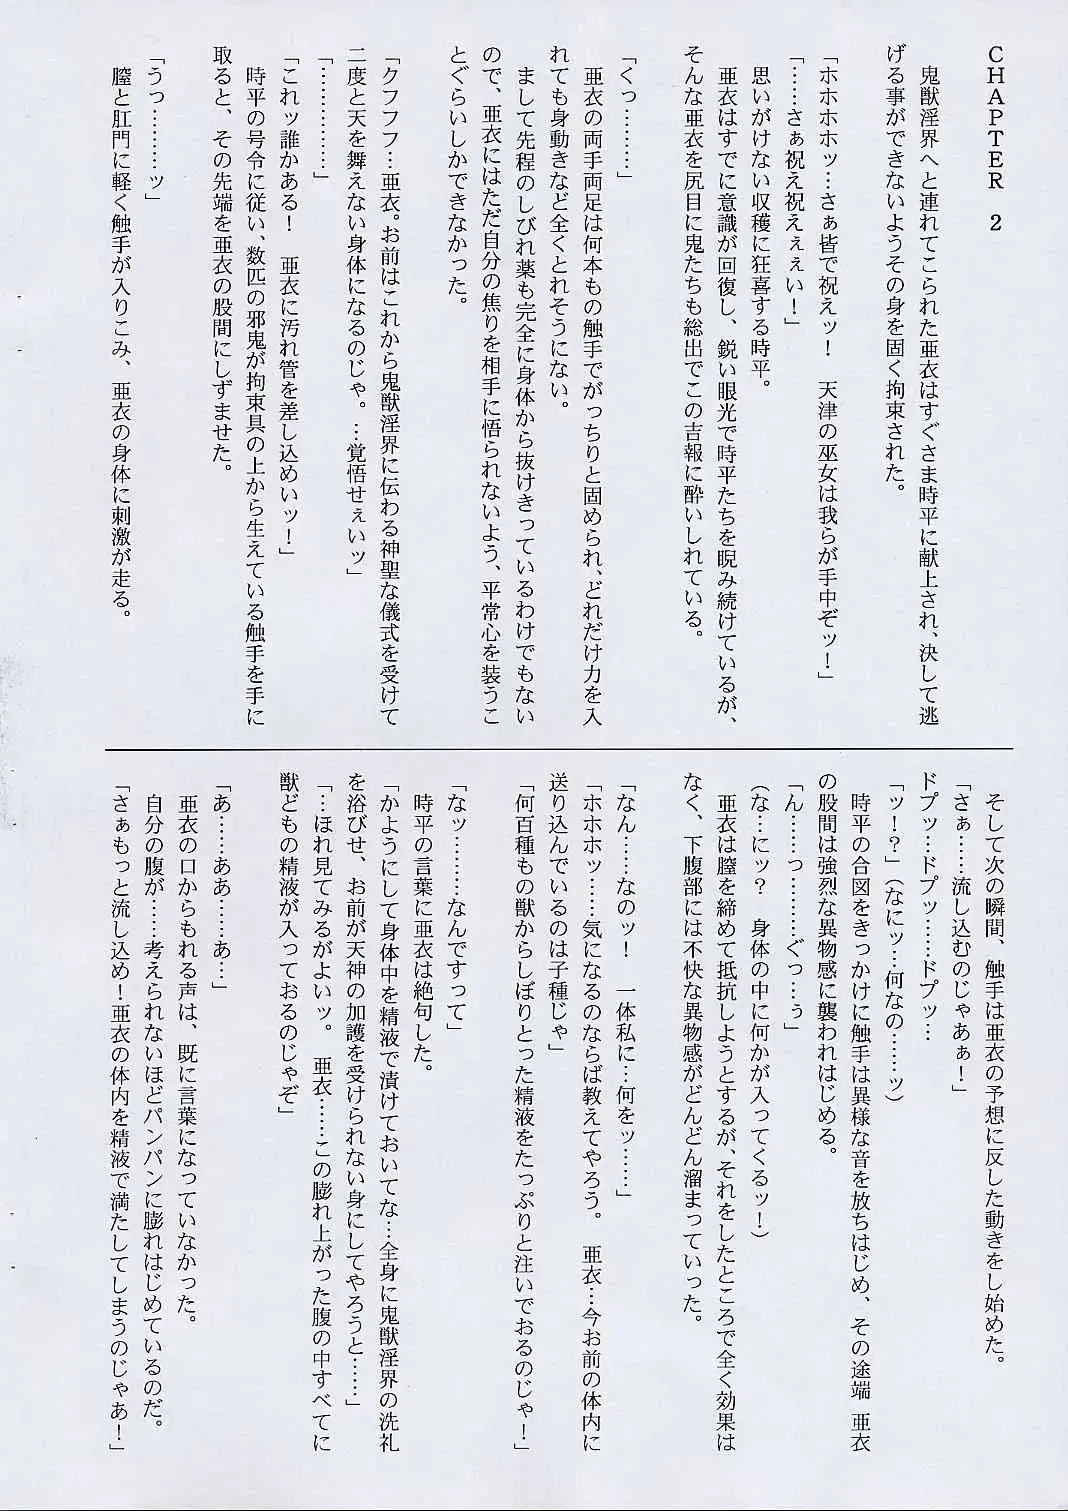 CHAPTER 2
鬼獣淫界へと連れてこられた亜衣はすぐさま時平に献上され、決して逃
げる事ができないようその身を固く拘束された。
「ホホホホッ…さぁ皆で祝えッ！　天津の巫女は我らが手中ぞッ！」
「……さぁ祝え祝えぇぇい！」
思いがけない収穫に狂喜する時平。
亜衣はすでに意識が回復し、鋭い眼光で時平たちを睨み続けているが、
そんな亜衣を尻目に鬼たちも総出でこの吉報に酔いしれている。
「くっ………」
亜衣の両手両足は何本もの触手でがっちりと固められ、どれだけ力を入
れても身動きなど全くとれそうにない。
まして先程のしびれ薬も完全に身体から抜けきっているわけでもない
ので、亜衣にはただ自分の焦りを相手に悟られないよう、平常心を装うこ
とぐらいしかできなかった。
「クフフフ…亜衣。お前はこれから鬼獣淫界に伝わる神聖な儀式を受けて
二度と天を舞えない身体になるのじゃ。…覚悟せぇいッ」
「…………」
「これッ誰かある！　亜衣に汚れ管を差し込めいッ！」
時平の号令に従い、数匹の邪鬼が拘束具の上から生えている触手を手に
取ると、その先端を亜衣の股間にしずませた。
「うっ………ッ」
膣と肛門に軽く触手が入りこみ、亜衣の身体に刺激が走る。
そして次の瞬間、触手は亜衣の予想に反した動きをし始めた。
「さぁ……流し込むのじゃあぁ！」
ドプッ…ドプッ……ドプッ…
「ッ！？」（なにッ…何なの……ッ）
時平の合図をきっかけに触手は異様な音を放ちはじめ、その途端 亜衣
の股間は強烈な異物感に襲われはじめる。
「ん……っ………ぐっ…ぅ」
（な…にッ？　身体の中に何かが入ってくるッ！）
亜衣は膣を締めて抵抗しようとするが、それをしたところで全く効果は
なく、下腹部には不快な異物感がどんどん溜まっていった。
「なん……なのッ！　一体私に…何をッ……」
「ホホホッ……気になるのならば教えてやろう。　亜衣…今お前の体内に
送り込んでいるのは子種じゃ」
「何百種もの獣からしぼりとった精液をたっぷりと注いでおるのじゃ！」
「なッ………なんですって」
時平の言葉に亜衣は絶句した。
「かようにして身体中を精液で漬けておいてな…全身に鬼獣淫界の洗礼
を浴びせ、お前が天神の加護を受けられない身にしてやろうと……」
「…ほれ見てみるがよいッ。　亜衣……この膨れ上がった腹の中すべてに
獣どもの精液が入っておるのじゃぞ」
「あ……ああ……あ…」
亜衣の口からもれる声は、既に言葉になっていなかった。
自分の腹が……考えられないほどパンパンに膨れはじめているのだ。
「さぁもっと流し込め！亜衣の体内を精液で満たしてしまうのじゃあ！」